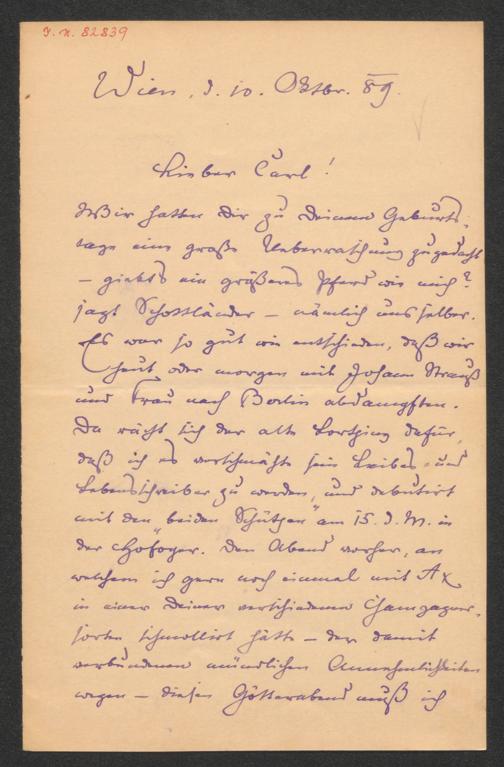 J. N. 82839
Wien, d. 10. Oktbr. 89.
Lieber Carl!
Wir hatten Dir zu Deinem Geburts-
tage eine große Ueberraschung zugedacht
– giebt's ein größeres Pferd wie mich?
sagt Schottländer – nämlich uns selber.
Es war so gut wie entschieden, daß wir
heut oder morgen mit Johann Strauß
und Frau nach Berlin abdampften.
Da rächt sich der alte Lortzing dafür,
daß ich es verschmähte sein Leibes- und
Lebensschreiber zu werden, und debutirt
mit den „beiden Schützen" am 15. d. M. in
der Hofoper. Den Abend vorher, an
welchem ich gern noch einmal mit Ax
in einer Deiner verschiedenen Champagner-
sorten schmollirt hätte – der damit
verbundenen mündlichen Annehmlichkeiten
wegen – diesen Götterabend muß ich